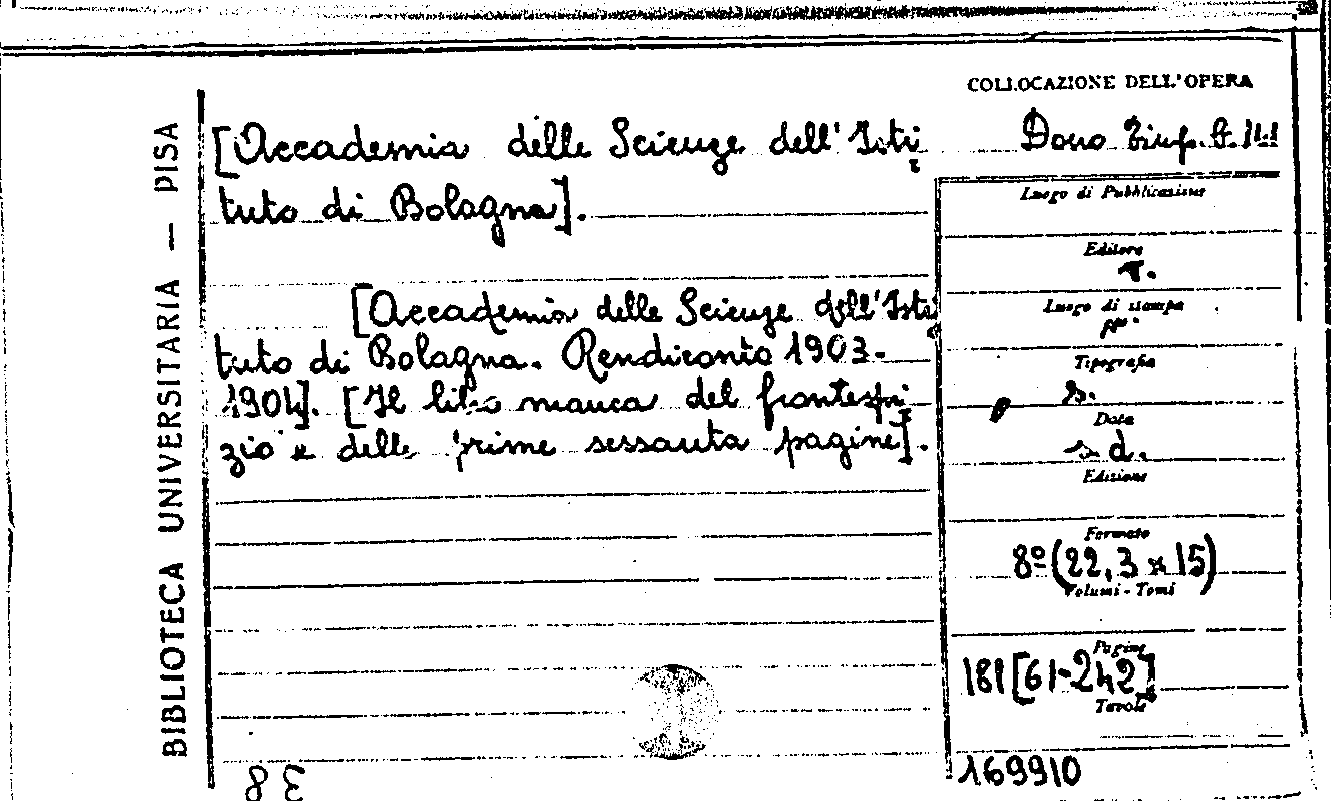 COLLOCAZIONE DELL'OPERA
BIBLIOTECA UNIVERSITARIA — PISA
[Accademia delle Scienze dell'Isti
Dono
tuto di Bolagna].
Luogo di Pubblicazione
Editore
[Accademia delle Scienze dell'Isti
Luogo di stampa
tuto di Bolagna. Rendiconto 1903-
Tipografia
1904]. [Il libro manca del frontespi
s.
Data
zio e delle prime sessanta pagine].
s. d.
Edizione
Formato
8º (22,3 x 15)
Volumi - Tomi
Pagine
181 [61-242]
Tavole
169910